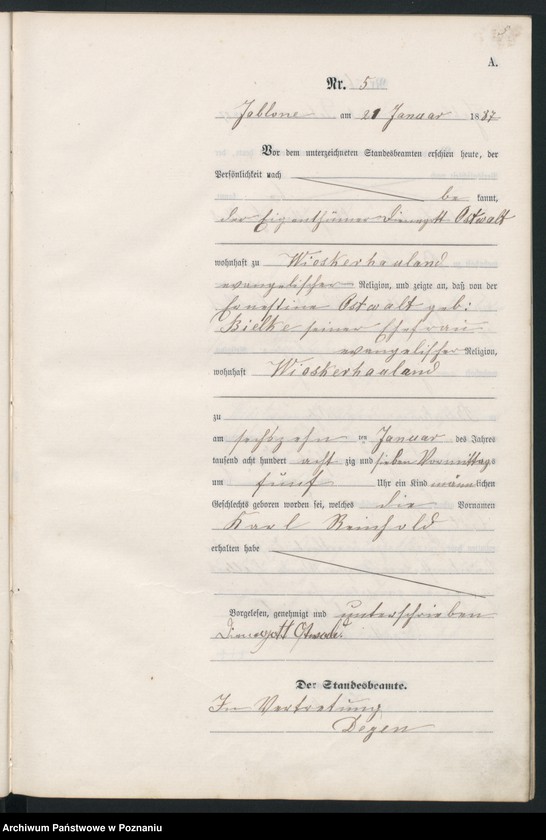 A.
Nr. 5
Jablone am 21 Januar 1887
Vor dem unterzeichneten Standesbeamten erschien heute, der
Persönlichkeit nach
be kannt,
der Eigenthümer Dienegott Ostwalt
wohnhaft zu Wioskerhauland
evangelischer Religion, und zeigte an, daß von der
Ernestine Ostwalt geb:
Bielke seiner Ehefrau
evangelischer Religion,
wohnhaft Wioskerhauland
zu
am sechszehn ten Januar des Jahres
tausend acht hundert acht zig und sieben Vormittags
um fünf Uhr ein Kind männlichen
Geschlechts geboren worden sei, welches die Vornamen
Karl Reinhold
erhalten habe
Vorgelesen, genehmigt und unterschrieben
Dienegott
Der Standesbeamte.
In Vertretung
Degen
Archiwum Państwowe w Poznaniu